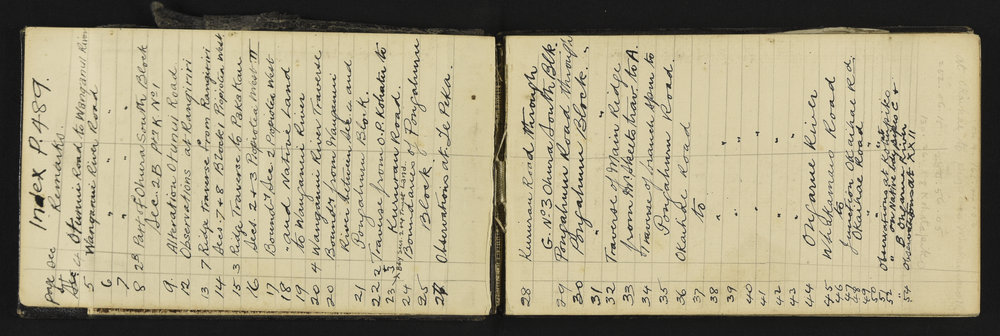 Index P.489.
Page Sec Remarks.
4 Otunui Road to Wanganui River
5 Wanganui River Road
6 " "
7 " "
8 2B Part of Ohura South Block
Sec. 2B Dr K No 1
9. Alteration Otunui Road.
12 Observations at Rangiriri
13 7 Ridge Traverse from Rangiriri
14 Secs 7 & 8 Block Piopiotea West
15 3 Ridge Traverse to Pukakau
16 Secs. 2 & 3 Piopiotea West III
17 Bound's Sec 2 Piopiotea West
18 and Native Land
19 to Wanganui River
20 4 Wanganui River Traverse
20 Bound's from Wanganui
River between Sec 4 and
21 Pongahuru Block.
22 2 Traverse from O.P. Kohatu to
23 Kururau Road.
24 Boundaries of Pongahuru
25 Block.
27 Observations at Te Peka.
28 Kururau Road through
G. No 3 Ohura South Blk.
29 Pongahuru Road through
30 Pongahuru Block.
31 " "
32 Traverse of Main Ridge
33 from Mr Skeets trav. to A.
34 Traverse of branch spur to
35 Pongahuru Road.
36 Okahu Road
37 to
38 "
39 "
40 "
41 "
42 "
43 "
44 Ongarue River
45 Whakamaro Road
46 Junction Okauae Rd
47 Okairae Road
48
49
50 Observations at
51 " on Native Sdy
52 B Ongarue River
54 Observations at XXII